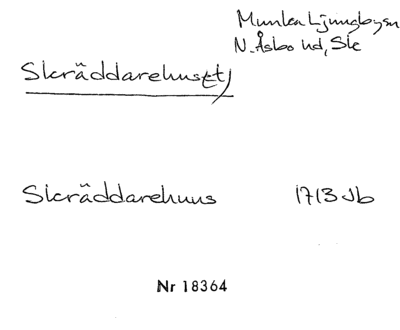 Munka Ljungbysn
N. Åsbo hd, Sk
Skräddarehus(et)
Skräddarehuus 1713 Jb
Nr 18364